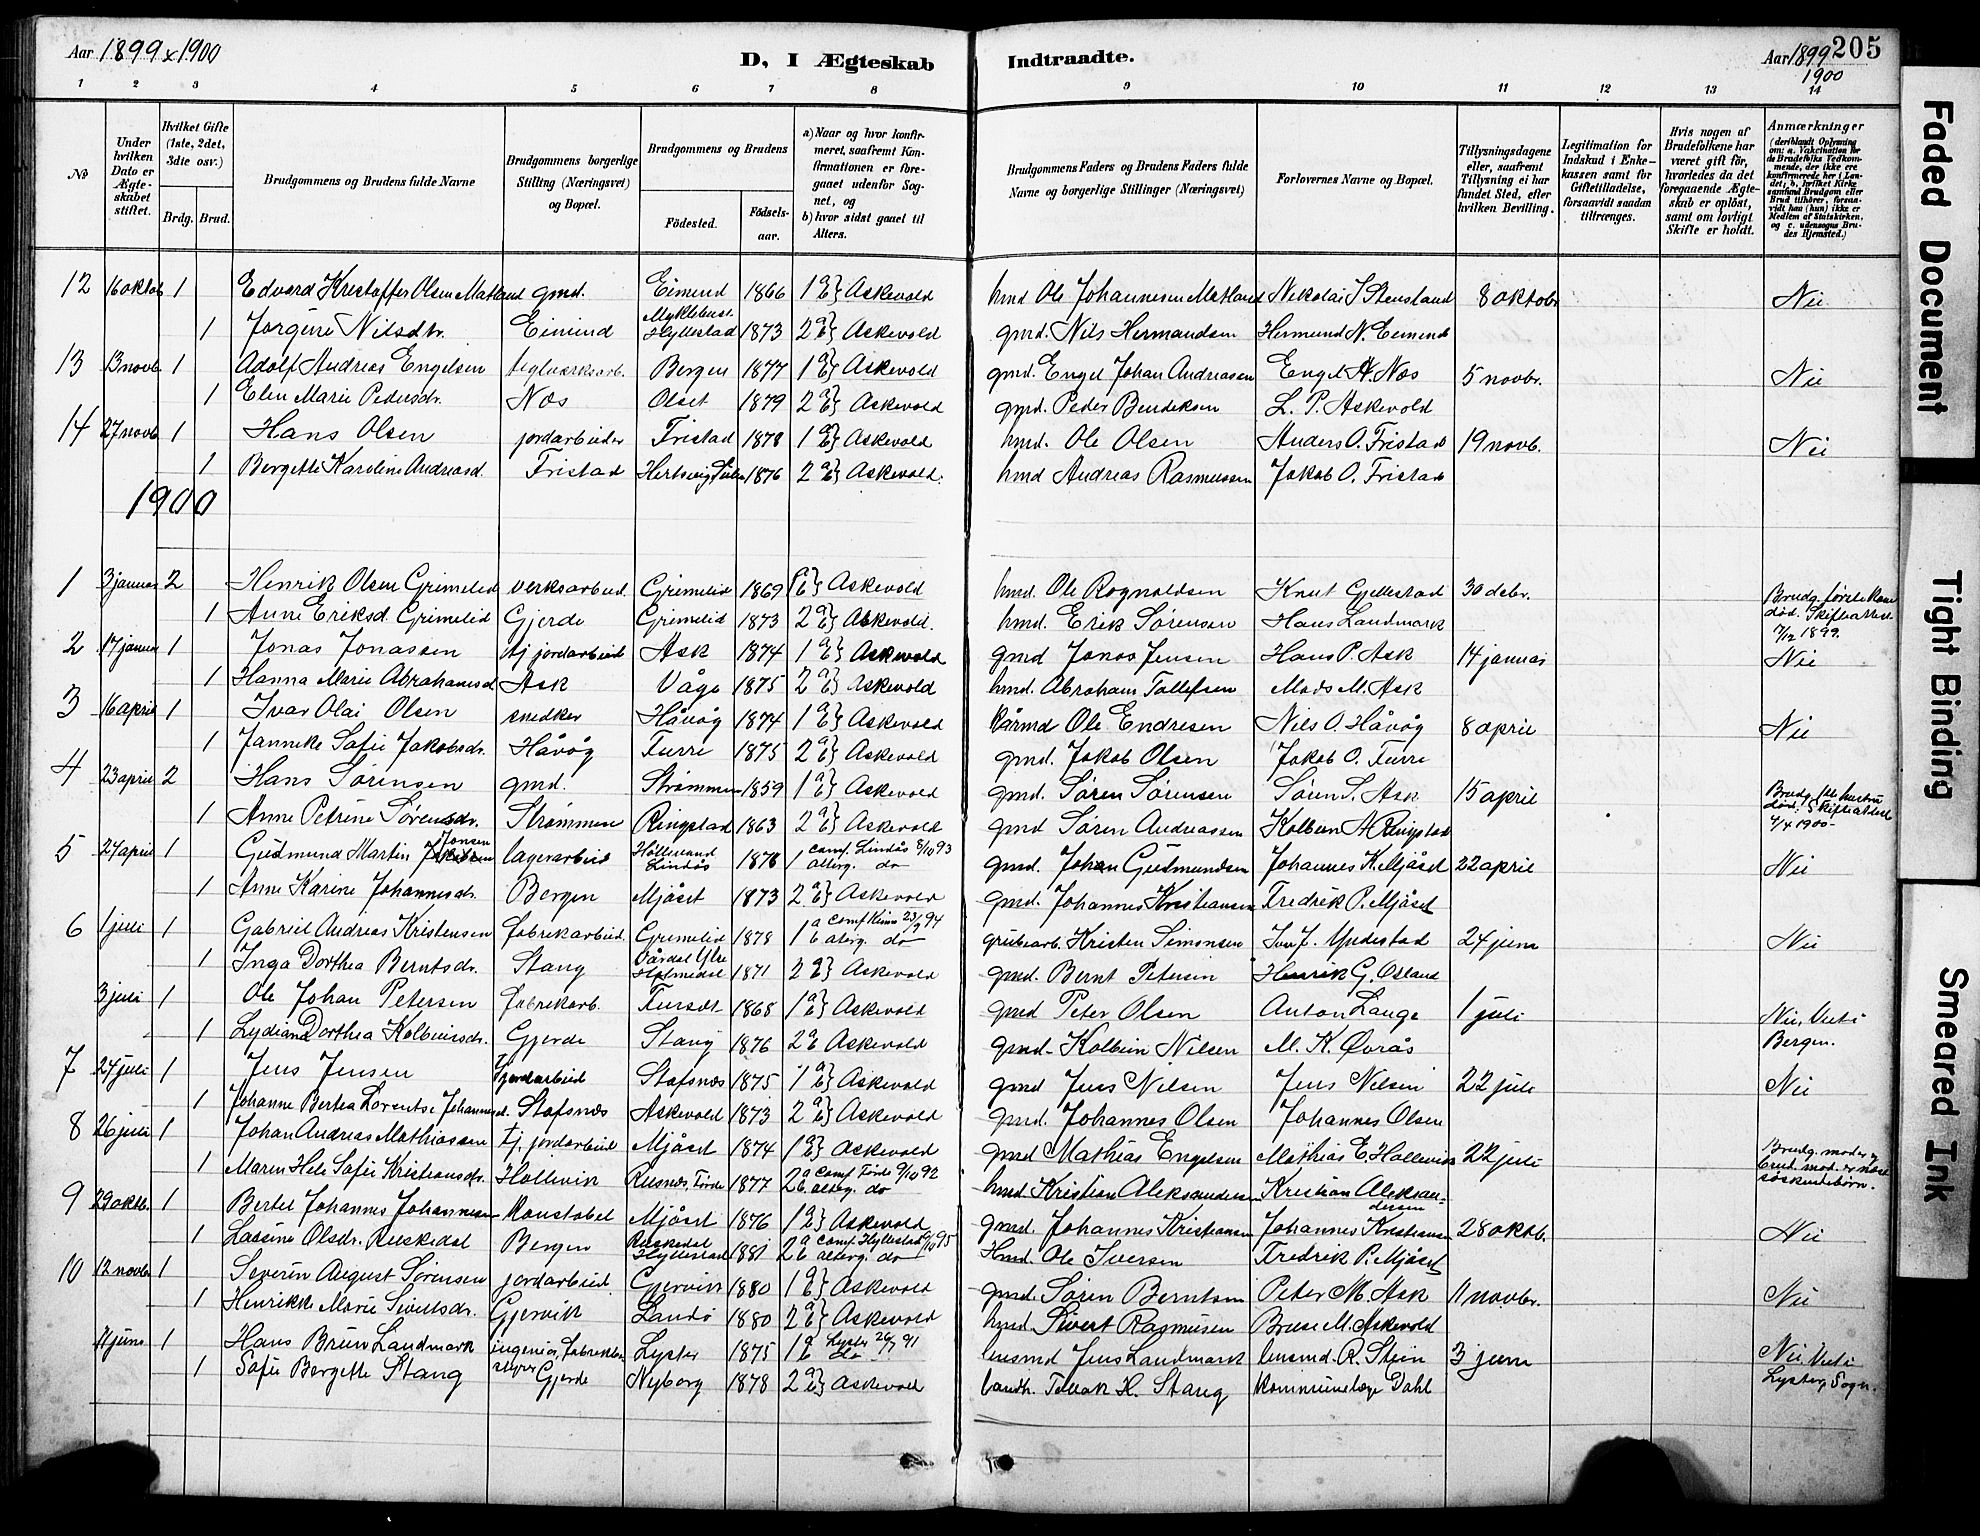 Aar 1899 & 1900 D, I Ægteskab Indtraadte. Aar 1899 205
1900
1 2 3 4 5 6 7 8 9 10 11 12 13 14
No
Under hvilken Dato er Ægteskabet stiftet.
Hvilket Gifte (1ste, 2det, 3die osv.)
Brdg. Brud.
Brudgommens og Brudens fulde Navne
Brudgommens borgerlige Stilling (Næringsvei) og Bopæl.
Brudgommens og Brudens
Fødested. Fødsels-aar.
a) Naar og hvor konfirmeret, saafremt Konfirmationen er foregaaet udenfor Sognet, og
b) hvor sidst gaaet til Alters.
Brudgommens Faders og Brudens Faders fulde Navne og borgerlige Stillinger (Næringsvei)
Forlovernes Navne og Bopæl.
Tillysningsdagene eller, saafremt Tillysning ei har fundet Sted, efter hvilken Bevilling.
Legitimation for Indskud i Enkekassen samt for Giftetilladelse, forsaavidt saadan tiltrænges.
Hvis nogen af Brudefolkene har været gift før, hvorledes da det foregaaende Ægteskab er opløst, samt om lovligt Skifte er holdt.
Anmærkninger (deriblandt Oplysning om: a. Vakcination for de Brudefolks Vedkommende, der ikke ere konfirmerede her i Landet; b. hvilket Kirkesamfund Brudgom eller Brud tilhører, forsaavidt han (hun) ikke er Medlem af Statskirken, og c. udensogns Brudes Hjemsted.)
12 16 oktob 1 Edvard Kristoffer Olsen Matland gmd. Eimind 1866 1 a b} Askevold hmd Ole Johannesen Matland Nikolai S Stensland 8 oktobr Nei
1 Jørgine Nilsdtr. Eimind Myklebust Hyllestad 1873 2 a b} Askevold gmd. Nils Hermandsen Hermund N. Eimind
13 13 novb 1 Adolf Andreas Engelsen teglværksarb. Bergen 1877 1 a b} Askevold gmd. Engel Johan Andreasen Engel A. Nos 5 novbr. Nei
1 Elen Marie Pedersdr. Nos Olset 1879 2 a b} Askevold gmd. Peder Bendiksen L. P. Askevold
14 27 novb 1 Hans Olsen jordarbeider Tristad 1878 1 a b} Askevold hmd. Ole Olsen Anders O. Tristad 19 novb. Nei
1 Bergette Karoline Andreasd. Tristad Hertsvig 1876 2 a b} Askevold. hmd Andreas Rasmussen Jakob O. Tristad
1900
1 3 januar 2 Henrik Olsen Grimelid verksarbeid. Grimelid 1869 1 a b} Askevold hmd. Ole Rognaldsen Knut Gjellestad 30 debr. Brudg. første kone død. Skifteattest 7/12 1899.
1 Anne Eriksd. Grimelid Gjerde Grimelid 1873 2 a b} Askevold. hmd. Erik Sørensen Hans Landmark
2 17 januar 1 Jonas Jonassen tj jordarbeid Ask 1874 1 a b} Askevold gmd Jonas Jensen Hans P. Ask 14 januar Nei
1 Hanna Marie Abrahamsd Ask Våge 1875 2 a b} Askevold hmd. Abraham Tollefsen Mads M. Ask
3 16 april 1 Ivar Olai Olsen snedker Håvåg 1874 1 a b} Askevold kårmd Ole Endresen Nils O. Håvåg 8 april Nei
1 Janneke Sofie Jakobsdr. Håvåg Furre 1875 2 a b} Askevold gmd. Jakob Olsen Jakob O. Furre
4 23 april 2 Hans Sørensen gmd. Strømmen 1859 1 a b} Askevold gmd. Søren Sørensen Søren S. Ask 15 april Brudg. hustru død. Skifteattest 4/4 1900-
1 Anne Petrine Sørensdr. Strømmen Ringstad 1863 2 a b} Askevold gmd Søren Andreassen Kolbein A Ringstad
5 24 april 1 Gudmund Martin Jonsen lagerarbeid Lindås 1878 1 conf. Lindås 8/10 93 alterg. do gmd. Johan Gudmundsen Johannes K. Mjåset 22 april Nei
1 Anne Karine Johannesdr. Bergen Mjåset 1873 2 a b} Askevold gmd. Johannes Kristiansen Fredrik P. Mjåset
6 1 juli 1 Gabriel Andreas Kristensen fabrikarbeid. Grimelid 1878 1 a conf Kinn 23/9 94 b alterg. do grubearb. Kristen Simonsen Yndestad 24 juni Nei
1 Inga Dorthea Berntsdr. Stang Holmedal 1871 2 a b} Askevold gmd. Bernt Petersen Henrik G. Osland
3 juli 1 Ole Johan Petersen fabrikarb. Furset 1868 1 a b} Askevold gmd Peter Olsen Anton Lange 1 juli Nei, Viet i Bergen.
1 Lydiana Dorthea Kolbeinsdr. Gjerde Stang 1876 2 a b Askevold gmd- Kolbein Nilsen M. K. Øvrås
7 24 juli 1 Jens Jensen Stafsnæs 1875 1 a b} Askevold gmd Jens Nilsen Jens Nilsen 22 juli Nei
1 Johanne Bertea Lorentse Johannesd. Stafsnæs Askevold 1873 2 a b} Askevold gmd. Johannes Olsen Johannes Olsen
8 26 juli 1 Johan Andreas Mathiassen tj. jordarbeid Mjåset 1874 1 a b} Askevold gmd Mathias Engelsen Mathias E. Hollevik 22 juli Brudg. moder og brud. mod. er næst søskendebørn.
1 Maren Hele Sofie Kristiansdr. Hollevik Rusnæs, Førde 1877 2 a conf. Førde 9/10 92 b. alterg. do hmd Kristian Aleksandersen Kristian Aleksandersen
9 29 oktb. 1 Bertel Johannes Johannesen konstabel Mjåset 1876 1 a b} Askevold gmd. Johannes Kristiansen Johannes Kristiansen 28 oktob. Nei
1 Lassine Olsdr. Risksdal Bergen Hyllestad 1881 2 a conf Hyllestad 95 b alterg. do Hmd. Ole Iversen Fredrik P. Mjåset
10 12 novbr 1 Severin August Sørensen jordarbeid. Gjervik 1880 1 a b} Askevold gmd. Søren Berntsen Peter M. Ask 11 novbr. Nei
1 Henrikke Marie Sivertsdr. Gjervik Landø 1880 2 a b} Askevold hmd Sivert Rasmusen Bruse M. Askevold
juni 1 Hans Brun Landmark ingeniør, fabrikbestyrer Lyster 1875 1 a Lyster 26/7 91 b do lensmd Jens Landmark lensmd. R. Stein 3 juni Nei, Viet i Lyster, Sogn.
1 Sofie Bergette Stang Gjerde Nyborg 1878 2 a b} Askevold landh. Tollak H. Stang kommunelæge Dahl
Faded Document
Tight Binding
Smeared Ink